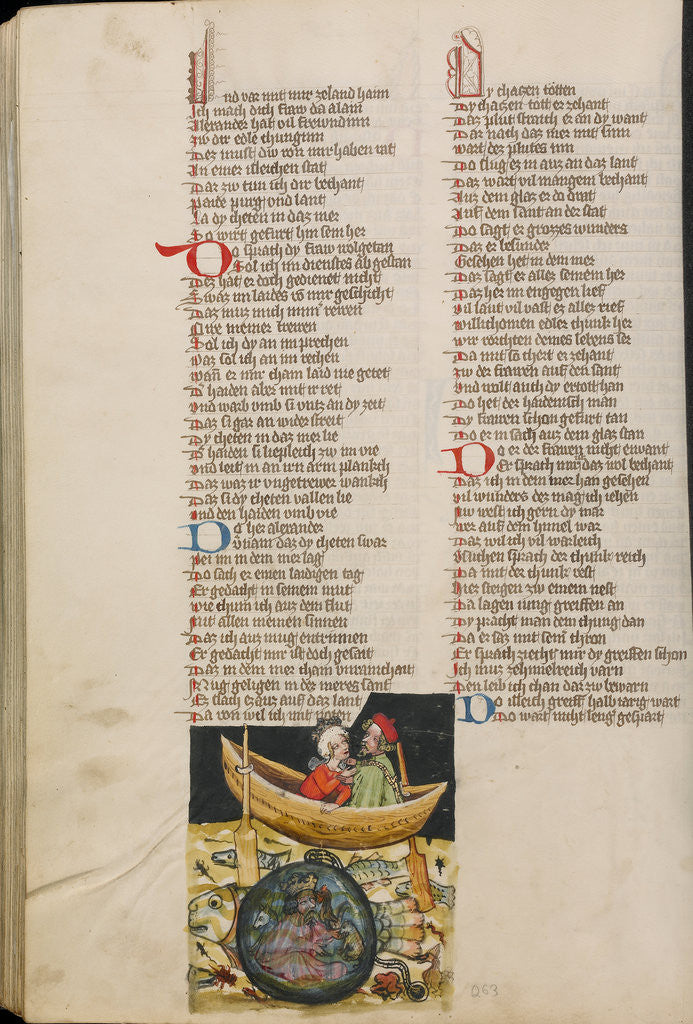 Vnd var mit mir zeland haim
Ich mach dich fraw da alain
Alexander hat vil frewndinn
Zw dir edle chunginn
Dez must diw von mir haben rat
In einer isleichen stat
Daz zw tun ich dir bechant
Paide purg vnd lant
La dy cheten in daz mer
So wirt gefurt hin sein her
Do sprach dy fraw wolgetan
Sol ich im dienstes ab gestan
Dez hat er doch gedienet nicht
Swaz im laides von mir geschicht
Daz muz mich imm rewen
Siwe meiner trewen
Sol ich dy an im prechen
Waz sol ich an im rechen
Wan er mir cham laid nie getet
D haiden aber mit ir ret
Vnd warb vmb si vntz an dy zeit
Daz si gar an wider streit
Dy cheten in daz mer lie
D haiden si liepleich zw im vie
Vnd leit in an irn arm plankch
Daz waz ir vngetrewer wankch
Daz si dy cheten vallen lie
Vnd den haiden vmb vie
Do her alexander
Vernam daz dy cheten swar
Pei im in dem mer lag
Do sach er einen laidigen tag
Er gedacht in seinem mut
Wie chum ich auz dem flut
Mit allen meinen sinnen
Daz ich auz mug entrinnen
Er gedacht mir ist doch gesait
Daz in dem mer cham vnrainchait
Mug geligen in der meres sant
Ez slach ez auz auf daz lant
Da von wil ich mit noten
Dy chaczen toten
Dy chaczen tott er zehant
Daz plut straich er an dy want
Dar nach daz mer mit sinn
Wart dez plutes inn
Do slug ez in auz an daz lant
Daz wart vil mangem bechant
Auz dem glaz er do trat
Auf dem sant an der stat
Do sagt er grozzes wunders
Daz er besunder
Gesehen het in dem mer
Daz sagt er aller seinem her
Daz her im engegen lief
Vil laut vil vast ez allez rief
Willichomen edler chunk her
Wir vorchten deines lebens ser
Da mit so chert er zehant
Zw der frawen auf den sant
Vnd wolt auch dy ertott han
Do het der haidenisch man
Dy frawen schon gefurt dan
Do er in sach auz dem glaz stan
Do er der frawen nicht envant
Er sprach mir daz wol bechant
Daz ich in dem mer han gesehen
Vil wunders dez mag ich iehen
Nw west ich gern dy mar
Wer auf dem himel war
Daz wil ich vil warleich
Versuchen sprach der chunk reich
Da mit der chunk vest
Hiez steigen zw einem nest
Da lagen iung greiffen an
Dy pracht man dem chung dan
Da er saz mit seim thron
Er sprach ziecht mir dy greiffen schon
Ich muz zehimelreich varn
Den leib ich chan dar zw bewarn
Do isleich greiff halb iarig wart
Do wart nicht leng gespart
263